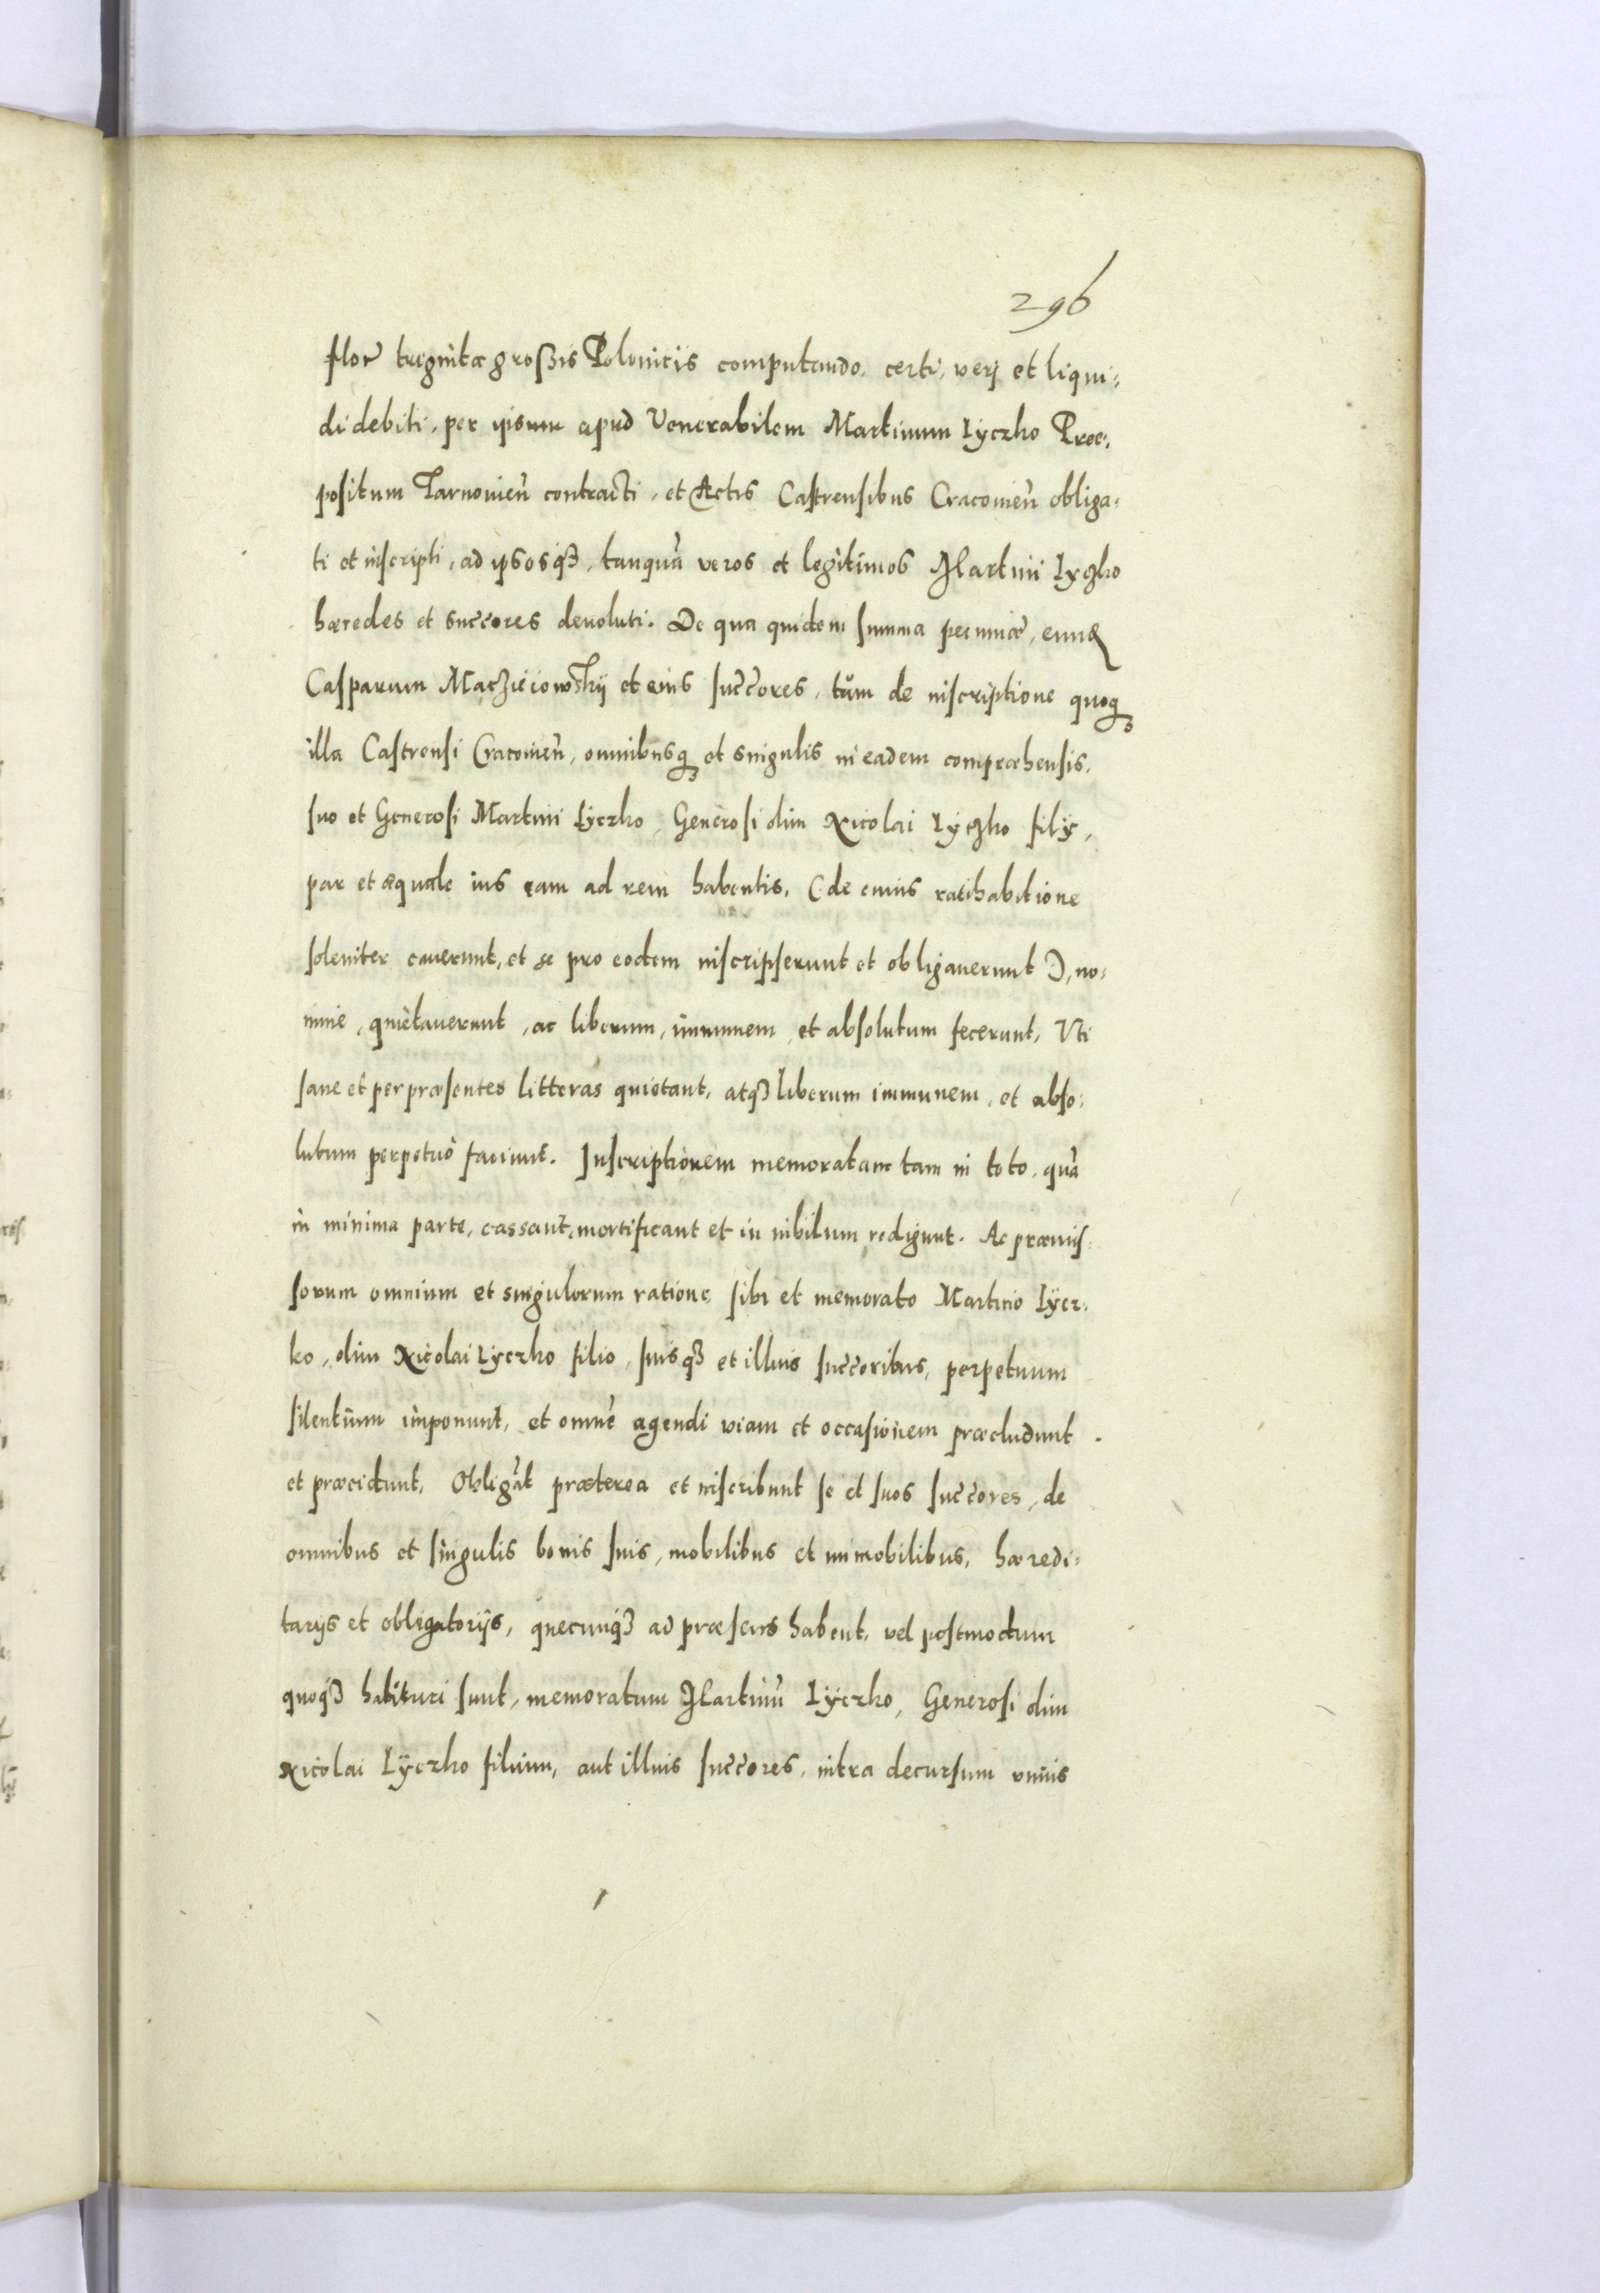 296
flor̃ trigintæ großis Polonicis computando. certi, veri et liqui-
di debiti, per ipsum apud Venerabilem Martinum Lyczko Præ-
positum Tarnouień contracti, et Actis Castrensibus Cracouień obliga-
ti et inscripti, ad ipsosq3, tanquã veros et legitimos Martini Lyczko
hæredes et succ̃ores deuoluti. De qua quidem summa pecuniæ, eund
Casparum Maczieiowskij et eius succ̃ores, tùm de inscriptione quoq3
illa Castrensi Cracouień, omnibusq3 et singulis in eadem compræhensis,
suo et Generosi Martini Lyczko, Generosi olim Nicolai Lyczko filij,
par et æquale ius eam ad rem habentis, (de cuius ratihabitione
soleniter cauerunt, et se pro eodem inscripserunt et obligauerunt), no-
mine, quietauerunt, ac liberum, immunem, et absolutum fecerunt, Vti
sane et per præsentes litteras quietant, atq3 liberum immunem, et abso-
lutum perpetuò faciunt. Inscriptionem memoratam tam in toto, quã
in minima parte, cassant, mortificant et in nihilum redigunt. Ac præmis-
sorum omnium et singulorum ratione, sibi et memorato Martino Lycz-
ko, olim Nicolai Lyczko filio, suisq3 et illius succ̃oribus, perpetuum
silentium imponunt, et omnẽ agendi viam et occasionem præcludunt
et præcidunt, Obligãt præterea et inscribunt se et suos succ̃ores, de
omnibus et singulis bonis suis, mobilibus et immobilibus, hæredi-
tarijs et obligatorijs, quecunq3 ad præsens habent, vel postmodum
quoq3 habituri sunt, memoratum Martinũ Lyczko, Generosi olim
Nicolai Lyczko filium, aut illius succ̃ores, intra decursum vnius